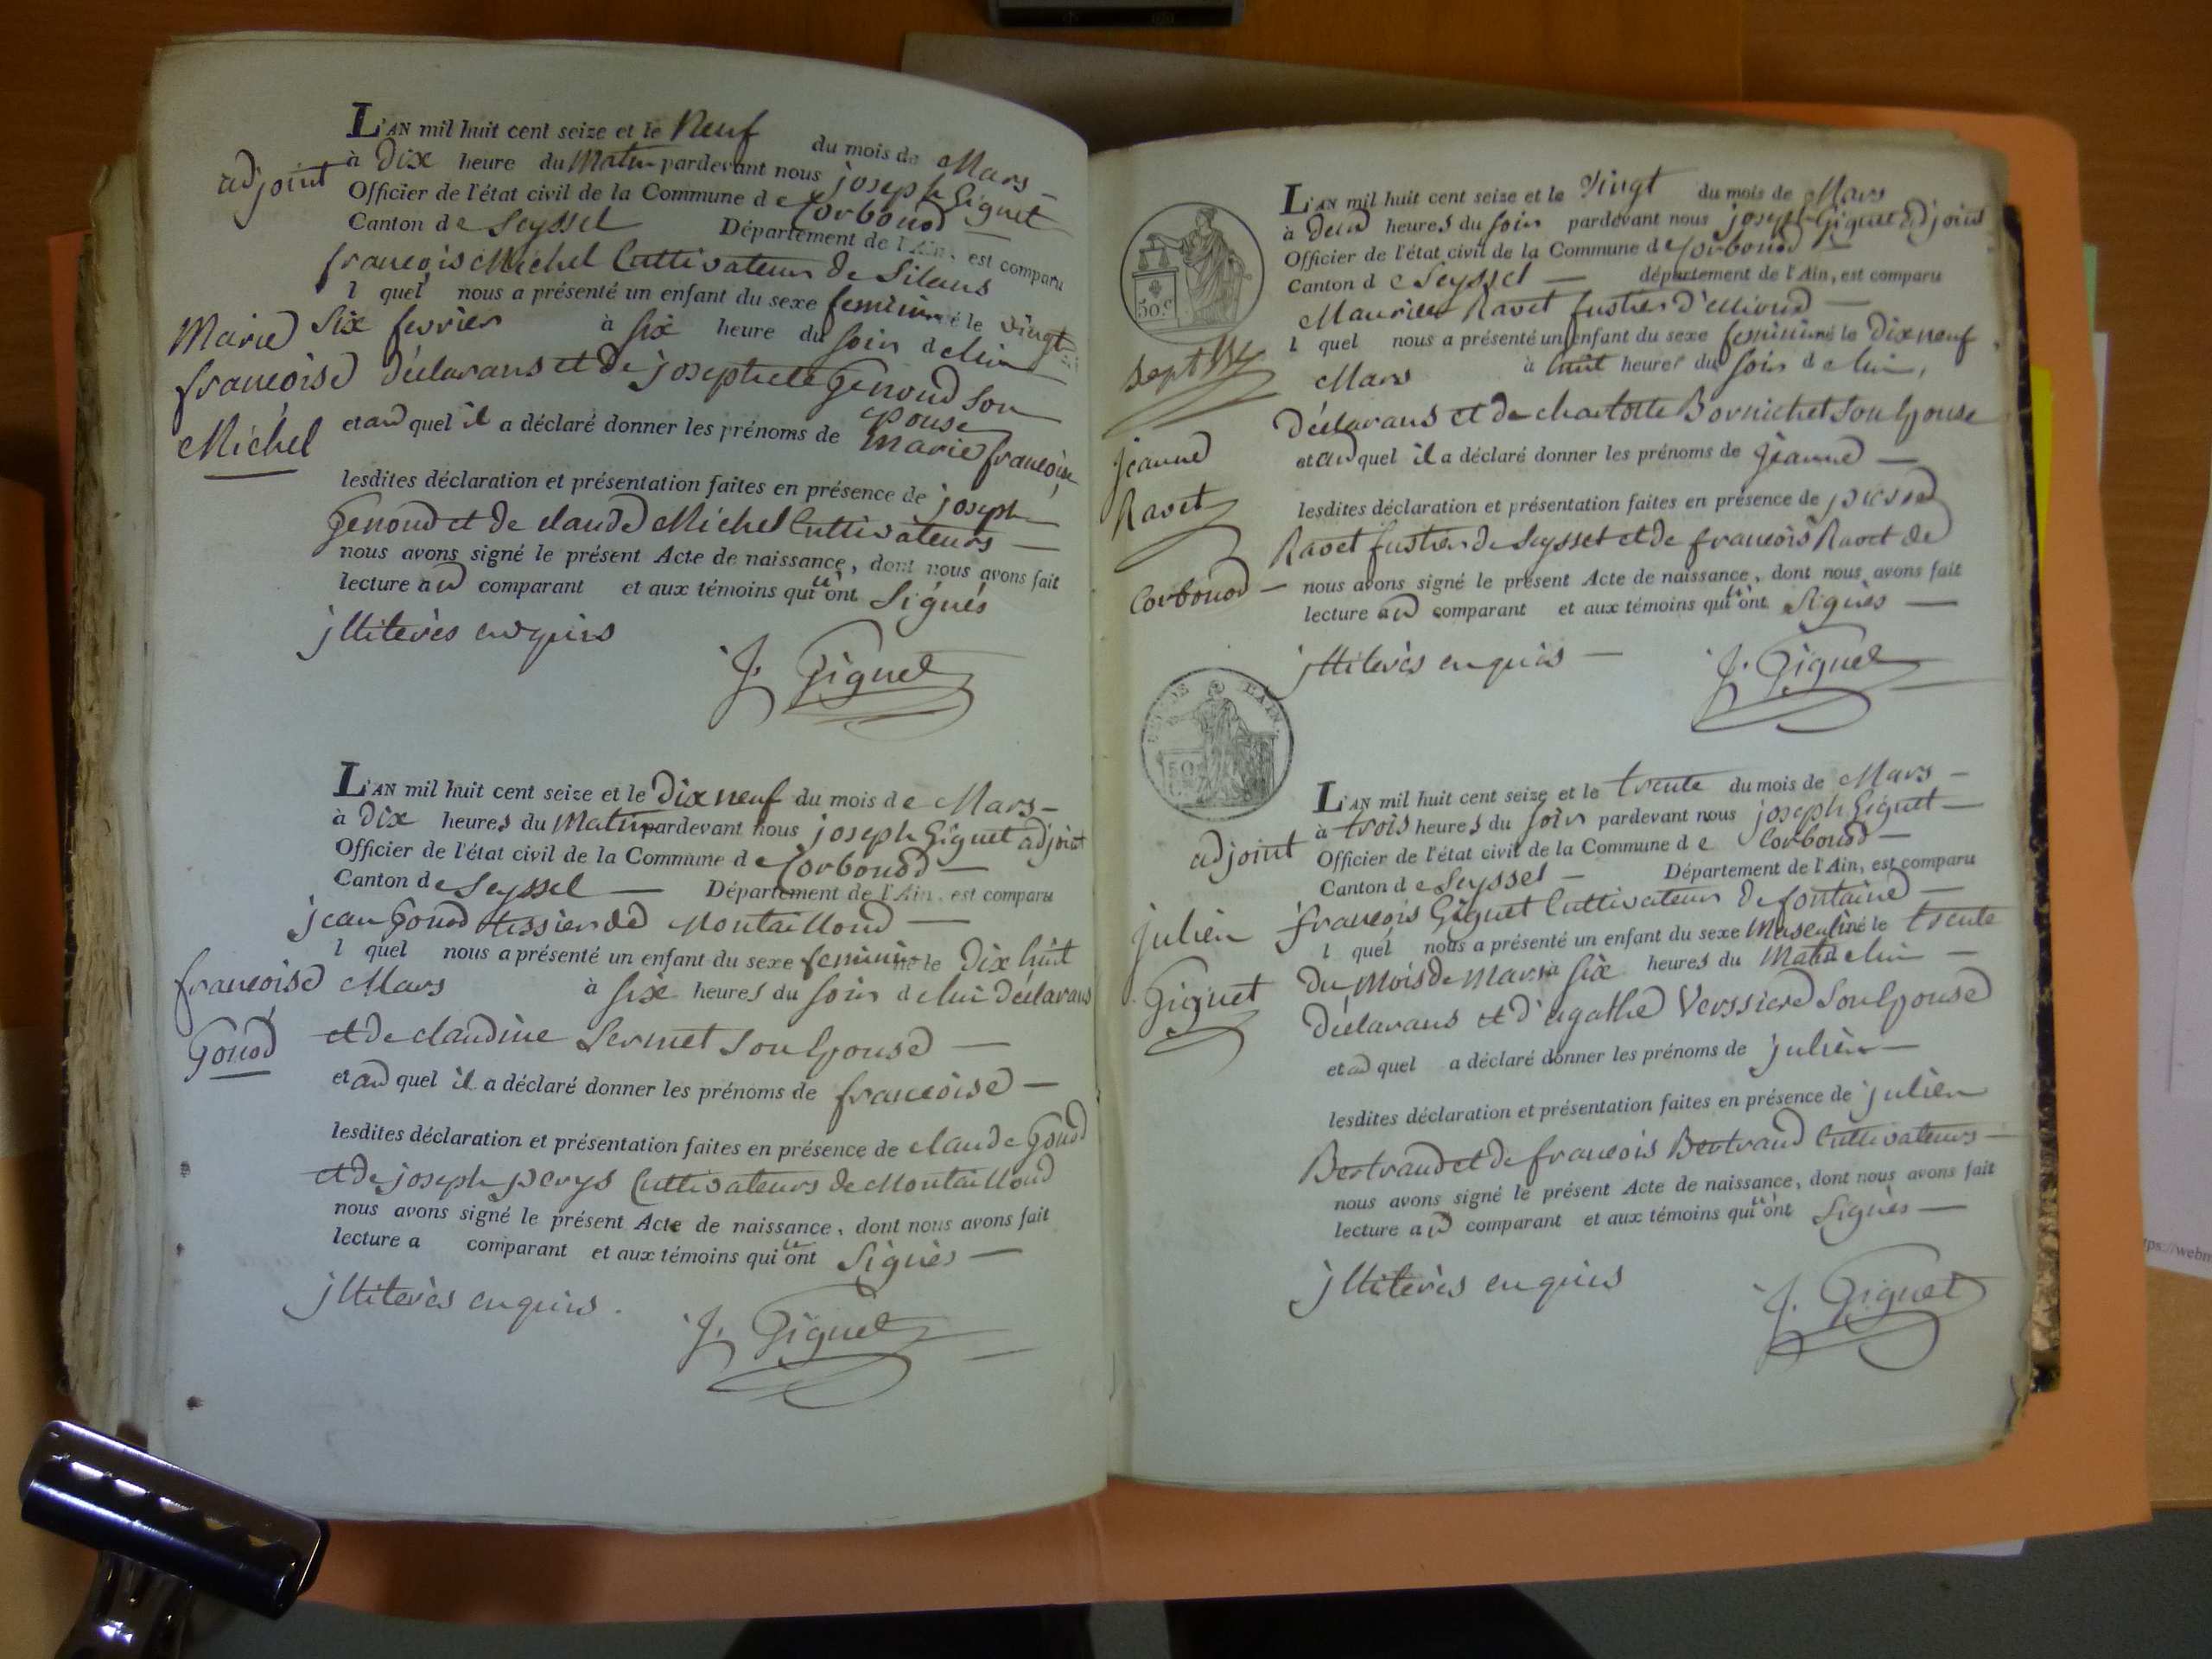 L'AN mil huit cent seize et le Neuf du mois de Mars
à Dix heure du Matin pardevant nous joseph Giguet
adjoint
Officier de l'état civil de la Commune de Corbonod
Canton de Seyssel Département de l'Ain, est comparu
françois Michel Cultivateur de Silans
l quel nous a présenté un enfant du sexe feminin né le vingt
Six fevrier à six heure du soir de lui
Marie
françoise
Michel
déclarans et de josephete Genoud son
epouse
et au quel il a déclaré donner les prénoms de Marie françoise
lesdites déclaration et présentation faites en présence de joseph
Genoud et de claude Michel Cultivateurs
nous avons signé le présent Acte de naissance, dont nous avons fait
lecture au comparant et aux témoins qui ont Signés
jlliterès enquis
J. Giguet
L'AN mil huit cent seize et le Dix neuf du mois de Mars
à Dix heures du Matin pardevant nous joseph Giguet adjoint
Officier de l'état civil de la Commune de Corbonod
Canton de Seyssel Département de l'Ain, est comparu
jean Gonod tissier de Montailloud
l quel nous a présenté un enfant du sexe feminin né le Dix huit
Mars à six heures du soir de lui déclarans
françoise
Gonod
et de claudine Sermet son Epouse
et au quel il a déclaré donner les prénoms de françoise
lesdites déclaration et présentation faites en présence de claude Gonod
et de joseph perys Cultivateurs de Montailloud
nous avons signé le présent Acte de naissance, dont nous avons fait
lecture a comparant et aux témoins qui ont Signès
jlliterès enquis.
J. Giguet
L'AN mil huit cent seize et le Vingt du mois de Mars
à Deux heures du soir pardevant nous joseph Giguet adjoint
Officier de l'état civil de la Commune de Corbonod
Canton de Seyssel département de l'Ain, est comparu
50.c
Maurice Ravet fustier
l quel nous a présenté un enfant du sexe feminin né le Dix neuf
Mars à huit heures du soir de lui,
Sept
Déclarans et de charlotte Bornichet son Epouse
et au quel il a déclaré donner les prénoms de Jeanne
Jeanne
Ravet
Corbonod
lesdites déclaration et présentation faites en présence de
Ravet fustier de Seyssel et de françois Ravet de
nous avons signé le présent Acte de naissance, dont nous avons fait
lecture au comparant et aux témoins qui ont Signès
jlliterès enquis
J. Giguet
L'AN mil huit cent seize et le trente du mois de Mars
à trois heures du soir pardevant nous joseph Giguet
adjoint
Officier de l'état civil de la Commune de Corbonod
Canton de Seyssel Département de l'Ain, est comparu
françois Giguet Cultivateur de fontaine
l quel nous a présenté un enfant du sexe Masculin né le trente
du Mois de Mars à six heures du Matin de lui
julien
Giguet
Déclarans et d'agathe Verssiere son Epouse
et au quel a déclaré donner les prénoms de julien
lesdites déclaration et présentation faites en présence de julien
Bertrand et de françois Bertrand Cultivateurs
nous avons signé le présent Acte de naissance, dont nous avons fait
lecture au comparant et aux témoins qui ont Signès
jlliterès enquis
J. Giguet